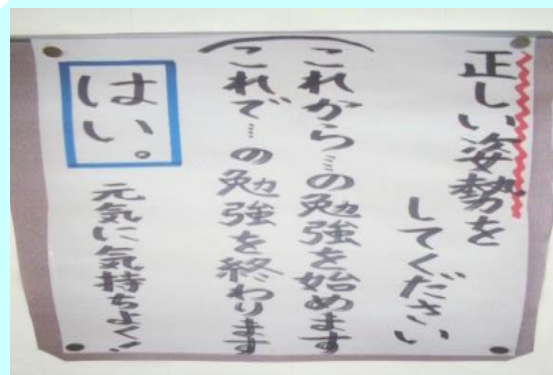 正しい姿勢を
してください
これから…の勉強を始めます
これで…の勉強を終わります
はい。
元気に気持ちよく!